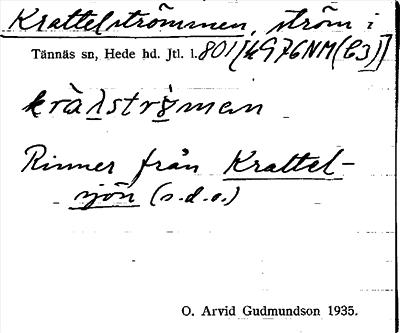 Krattelströmmen, ström i
Tännäs sn, Hede hd. Jtl. l. 801 [k976NM(C3)]
kràλstrǫ̀mɐn
Rinner från Krattel-
sjön (s.d.o.)
O. Arvid Gudmundson 1935.